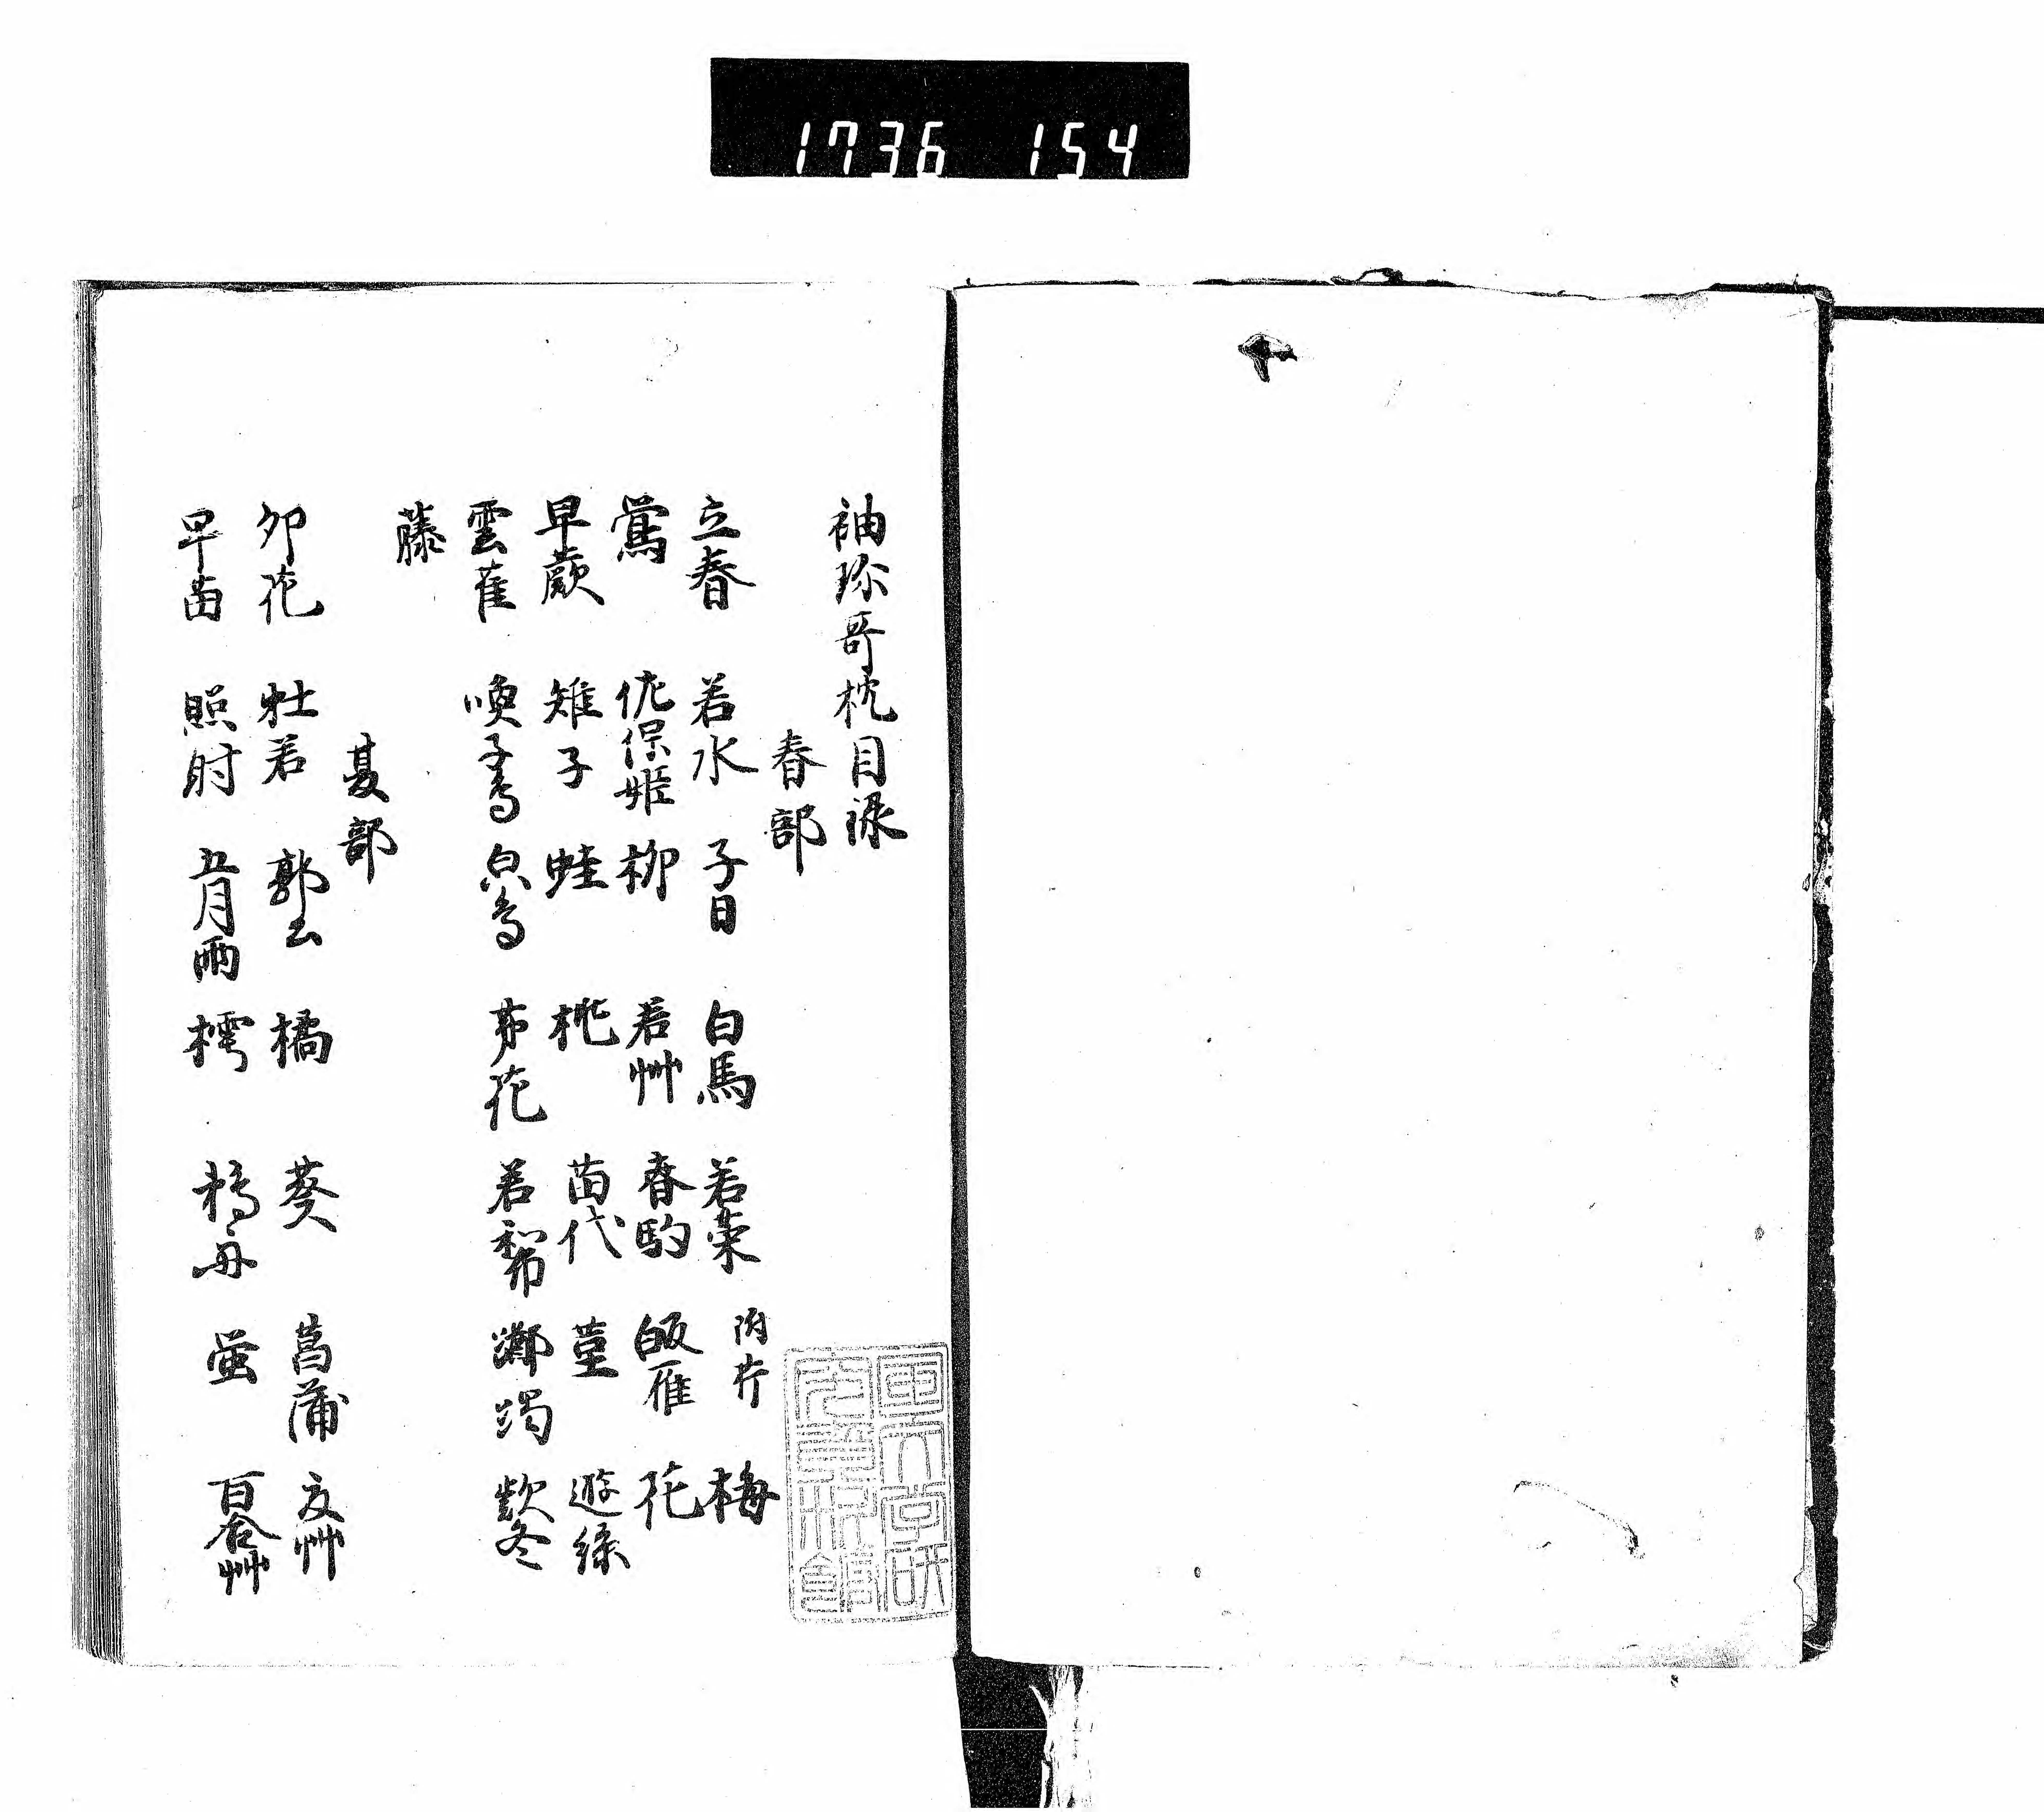 1736 154
袖珎哥枕目禄
春部
立春 若水 子日 白馬 若菜 附芹 梅
鶯 佐保姫 柳 若艸 春駒 皈雁 花
早蕨 雉子 蛙 桃 苗代 菫 遊絲
雲雀 喚子鳥 皃鳥 茅花 若和布 躑躅 欵冬
藤
夏部
卯花 牡若 郭公 橘 葵 菖蒲 夏艸
早苗 照射 五月雨 樗 鵜舟 蛍 百合艸